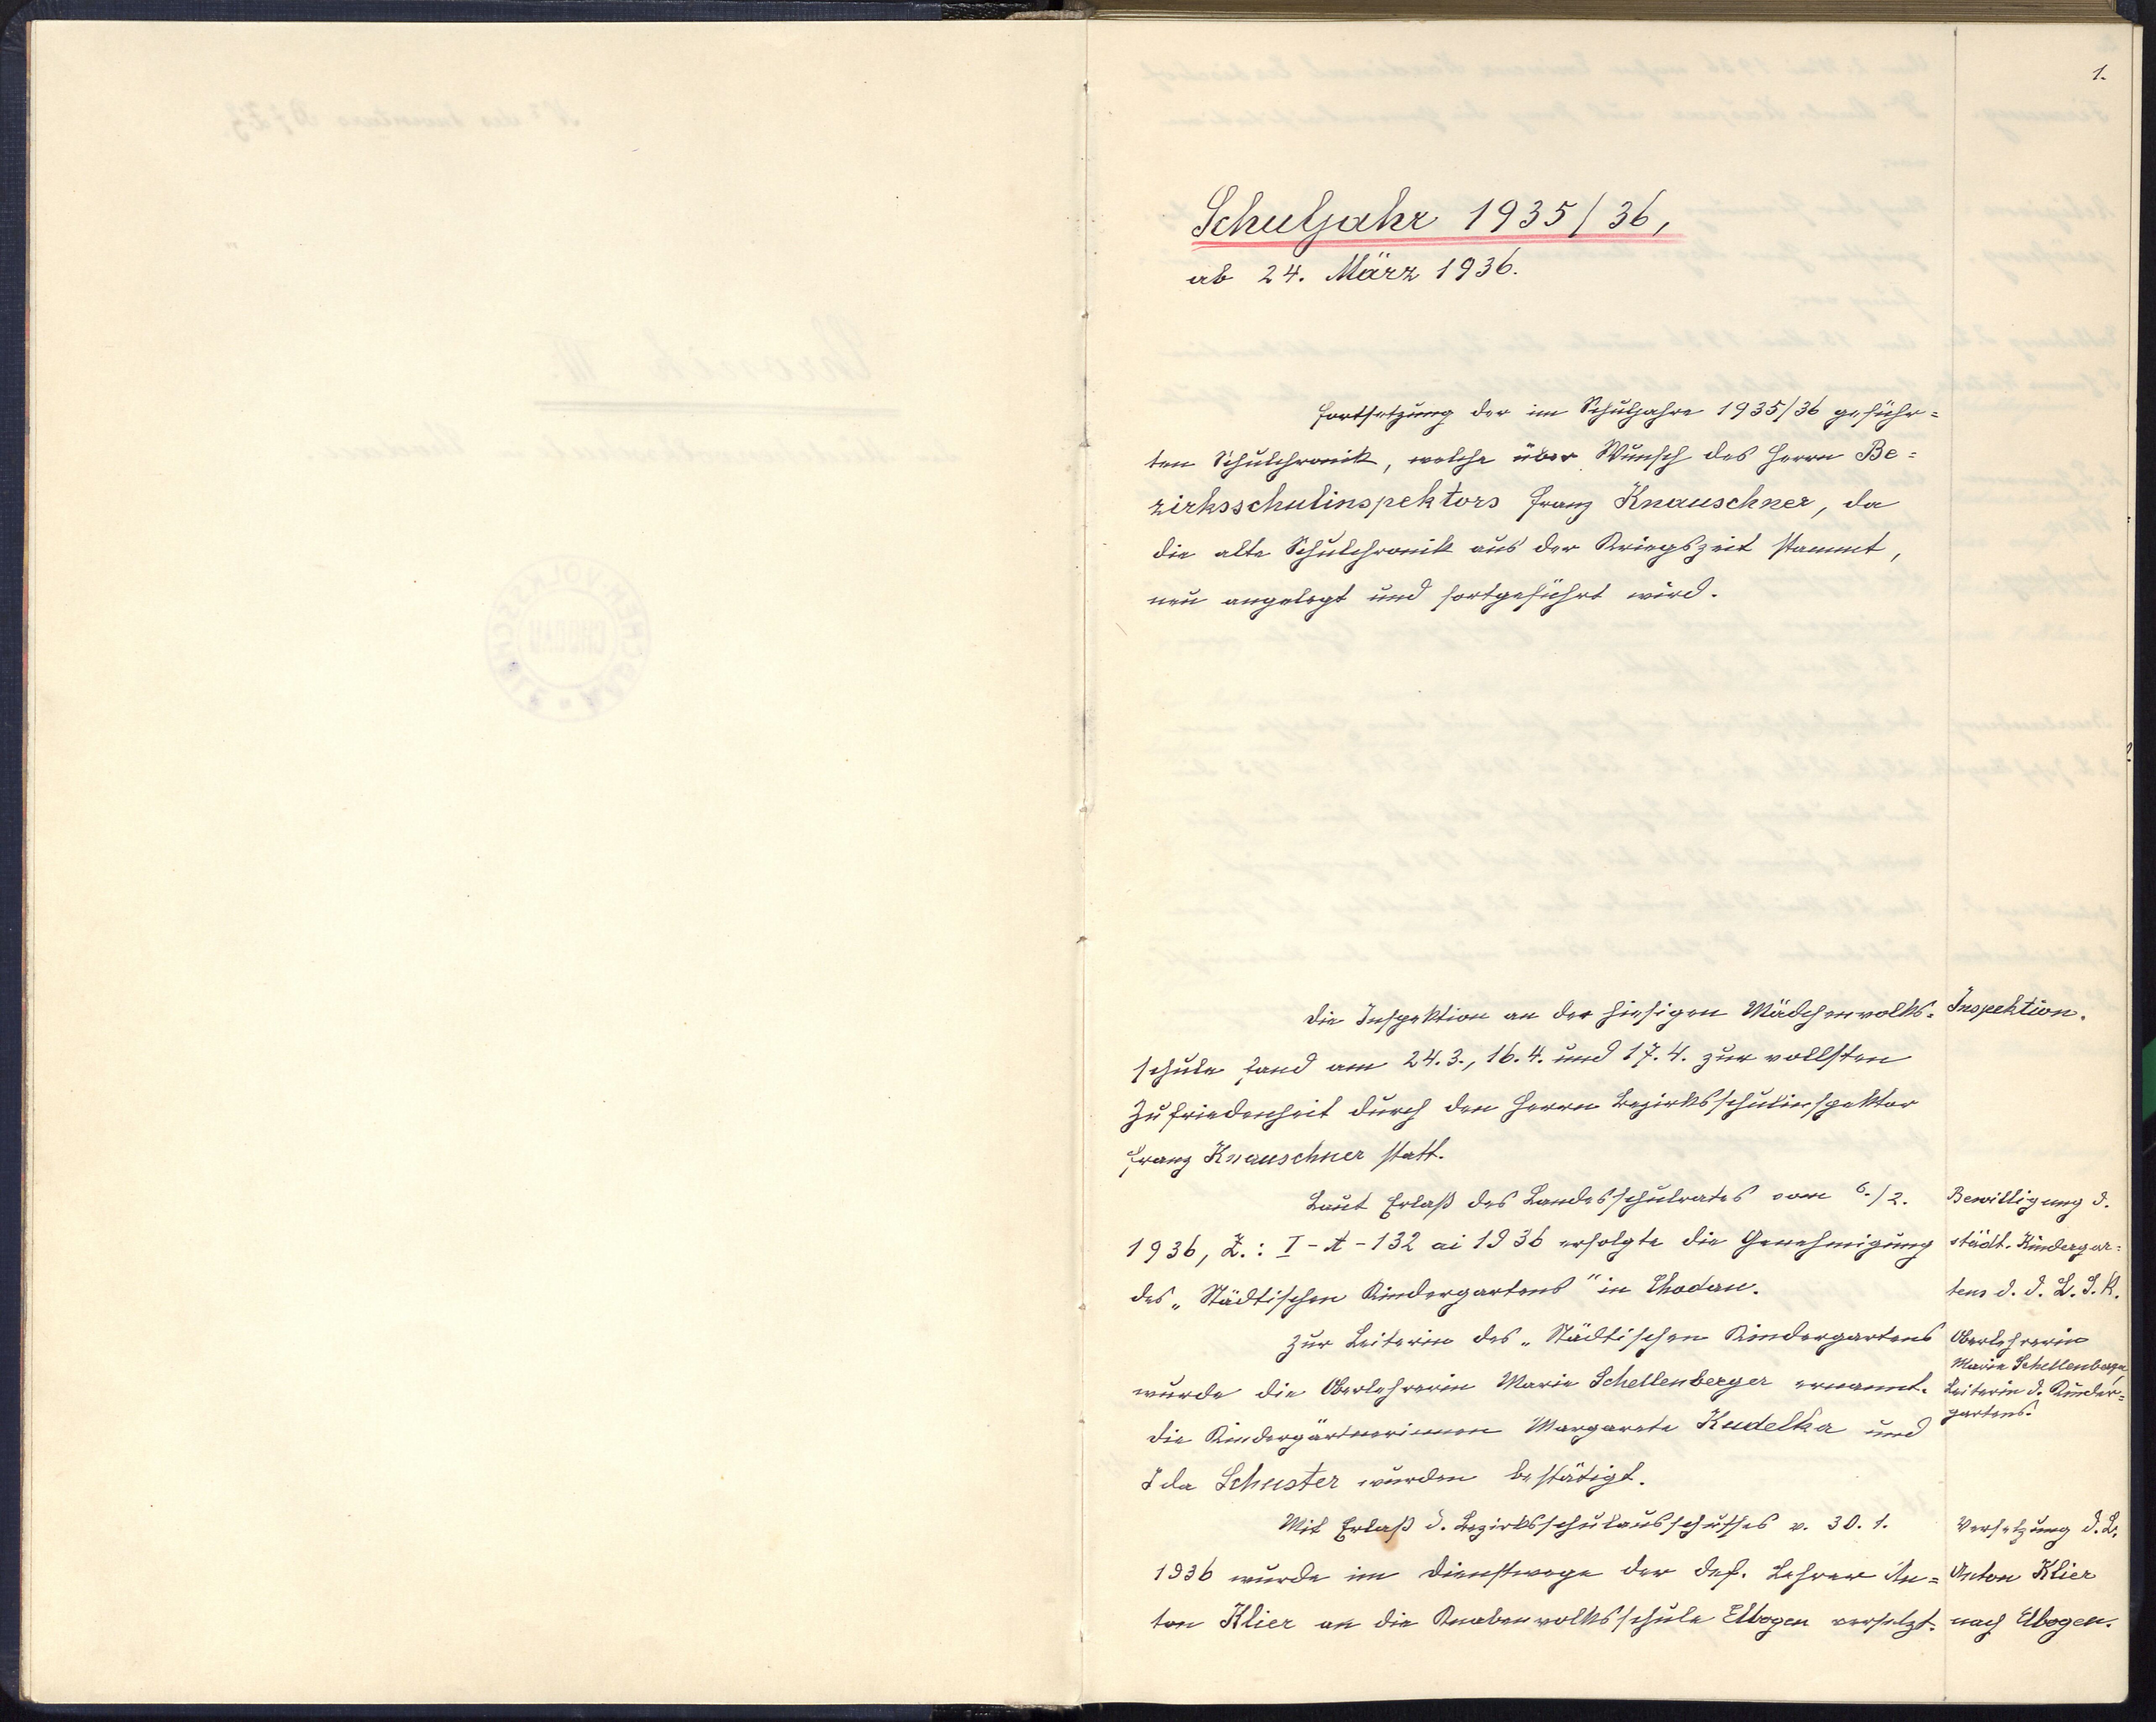 1.
Schuljahr 1935/36,
ab 24. März 1936.
Fortsetzung der im Schuljahre 1935/36 geführ=
ten Schulchronik, welche über Wunsch des Herrn Be=
zirksschulinspektors Franz Knauschner, da
die alte Schulchronik aus der Kriegszeit stammt,
neu angelegt und fortgeführt wird.
Die Inspektion an der hiesigen Mädchenvolks=
Inspektion.
schule fand am 24.3., 16.4. und 17.4. zur vollsten
Zufriedenheit durch den Herrn Bezirksschulinspektor
Franz Knauschner statt.
Laut Erlaß des Landesschulrates vom 6./2.
Bewilligung d.
1936, Z.: I-A-132 ai 1936 erfolgte die Genehmigung
städt. Kindergar=
des „Städtischen Kindergartens" in Chodau.
tens d. d. L.S.R.
Zur Leiterin des „Städtischen Kindergartens
Oberlehrerin
Marie Schellenberger,
wurde die Oberlehrerin Marie Schellenberger ernannt.
Leiterin d. Kinder=
gartens.
Die Kindergärtnerinnen Margarete Kudelka und
Ida Schuster wurden bestätigt.
Mit Erlaß d. Bezirksschulausschusses v. 30.1.
Versetzung d. L.
1936 wurde im Dienstwege der def. Lehrer An=
Anton Klier
ton Klier an die Knabenvolksschule Elbogen versetzt.
nach Elbogen.